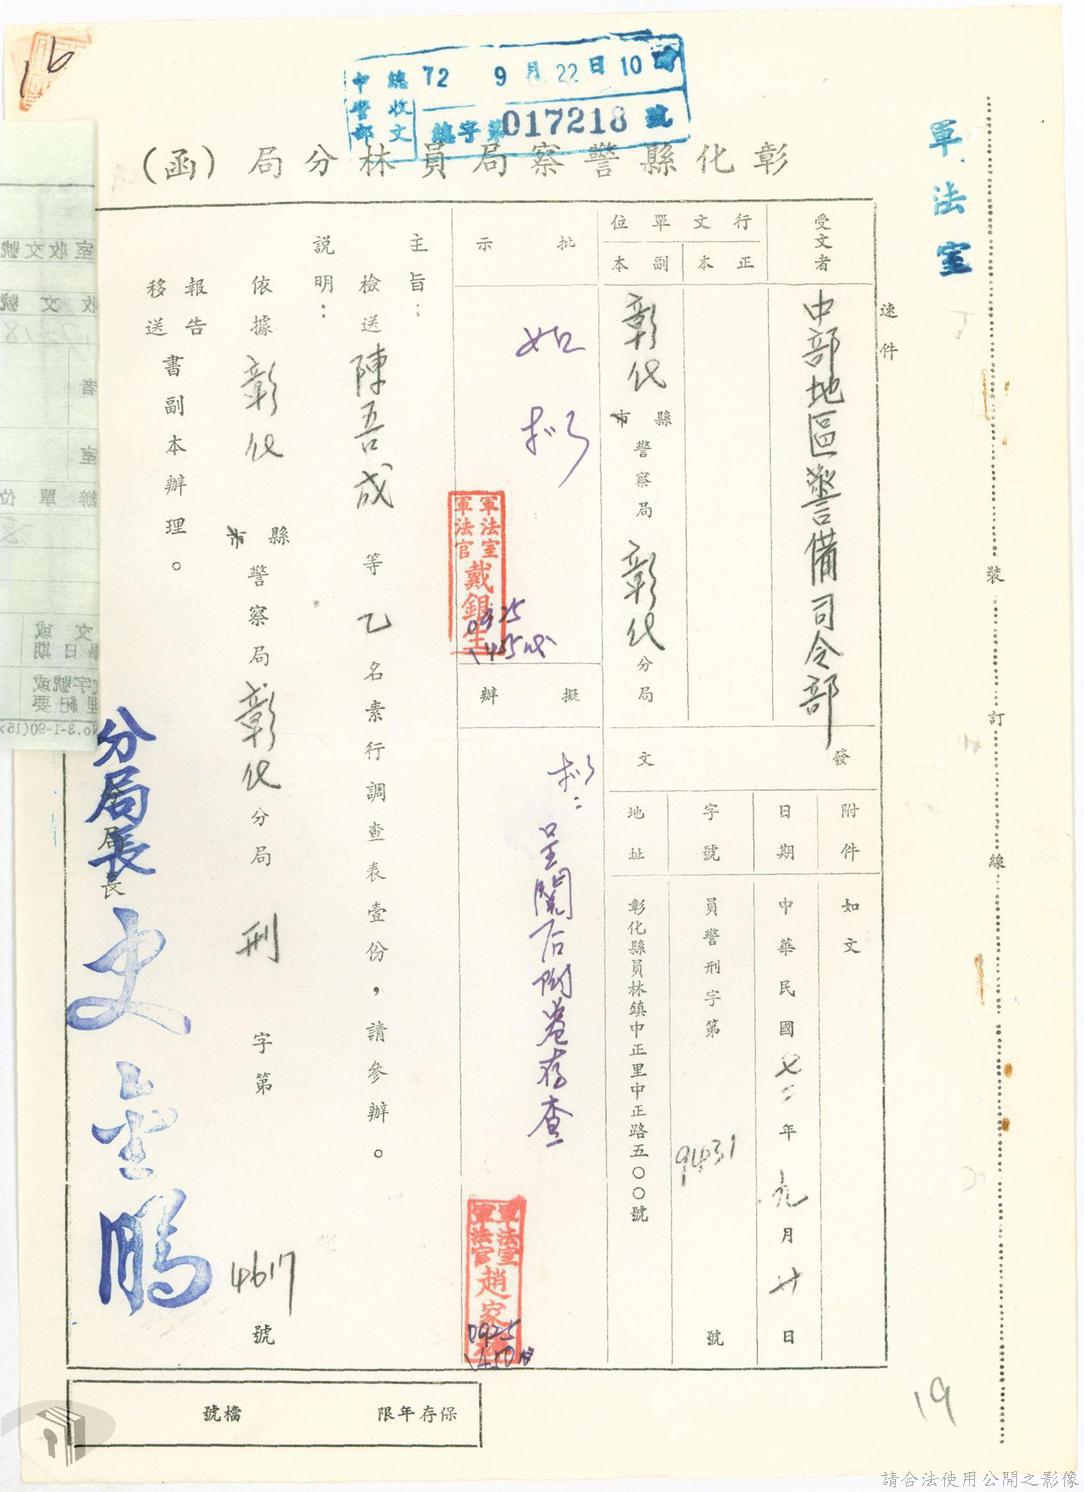 16
中警部
總收文
72 9月22日10時
總字第017218號
彰化縣警察局員林分局(函)
軍法室
速件
受文者
中部地區警備司令部
行文單位
正本
副本
彰化縣市警察局彰化分局
發文
附件
如文
日期
中華民國七二年九月廿日
字號
員警刑字第9431號
地址
彰化縣員林鎮中正里中正路五○○號
批示
如擬
軍法室
軍法官
0925
擬辦
擬:
呈閱后附卷存查
軍法室
軍法官
0925
主旨:
檢送陳吾成等乙名素行調查表壹份,請參辦。
說明:
依據彰化縣市警察局彰化分局刑字第4617號
報告
移送
書副本辦理。
分局長
分局長史金鵬
室收文號
收文號
者
室
辦單位
文或
畢日期
文字號或
理紀要
No.3-1-90(15×
裝
訂
線
保存年限
檔號
19
請合法使用公開之影像